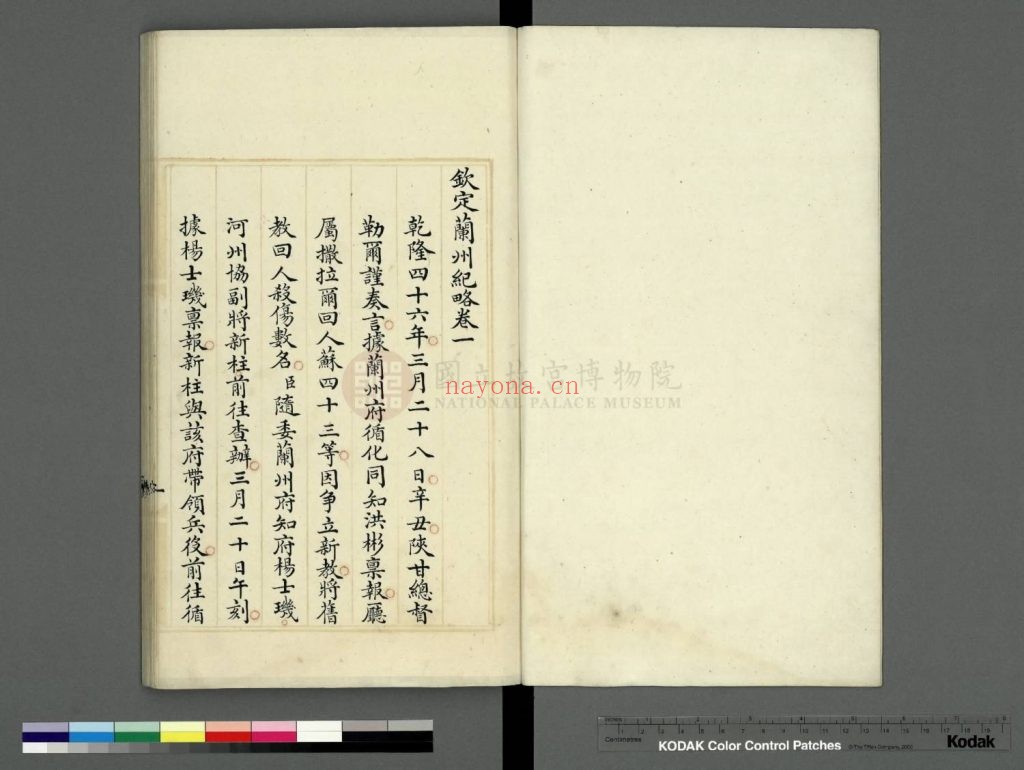 欽定蘭州紀略卷一
乾隆四十六年三月二十八日辛丑陜甘總督
勒爾謹奏言據蘭州府循化同知洪彬稟報廳
屬撒拉爾回人蘇四十三等因爭立新教將舊
教回人殺傷數名臣隨委蘭州府知府楊士璣
河州協副將新柱前往查辦三月二十日午刻
據楊士璣稟報新柱與該府帶領兵役前往循
國立故宮博物院
NATIONAL PALACE MUSEUM
nayona.cn
Inches
Centimetres
KODAK Color Control Patches
© The Tiffen Company, 2000
Kodak